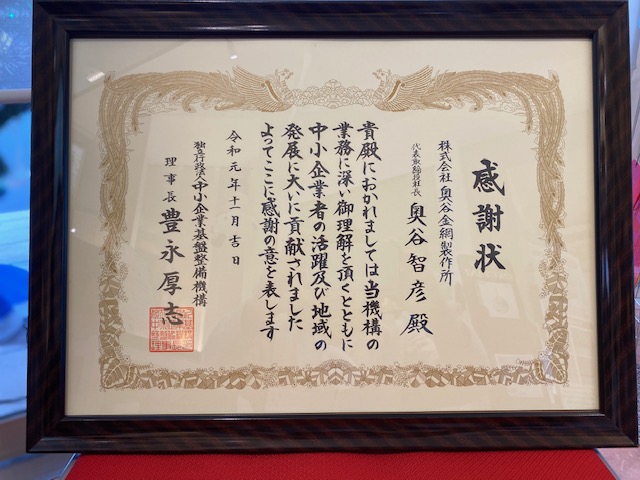 感謝状
株式会社奥谷金網製作所
代表取締役社長 奥谷智彦殿
貴殿におかれましては当機構の
業務に深い御理解を頂くとともに
中小企業者の活躍及び地域の
発展に大いに貢献されました
よってここに感謝の意を表します
令和元年十一月吉日
独立行政法人中小企業基盤整備機構
理事長 豊永厚志